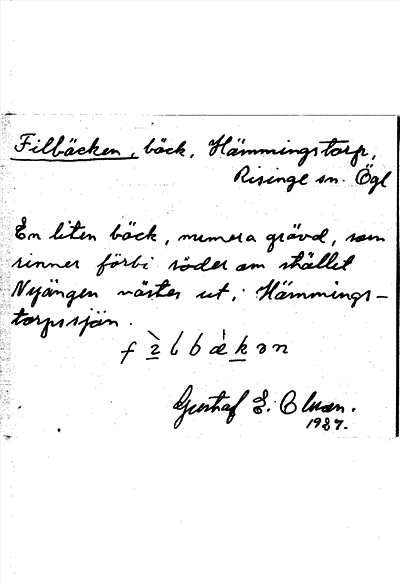 Filbäcken, bäck, Hämmingstorp,
Risinge sn. Ögl
En liten bäck, numera grävd, som
rinner förbi söder om stället
Nyängen väster ut i Hämmings-
torpssjön.
Gustaf E. Olsson.
1927.